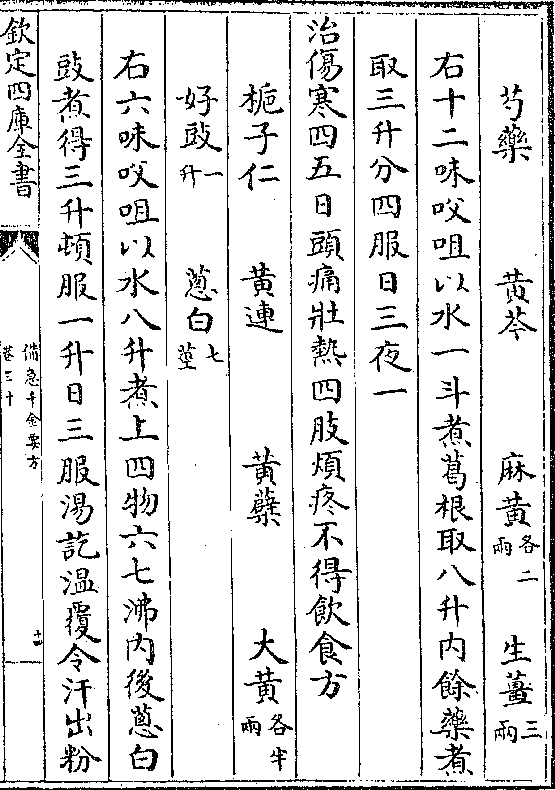 芍藥 黄芩 麻黄各二兩 生薑三兩
右十二味㕮咀以水一斗煮葛根取八升内餘藥煮
取三升分四服日三夜一
治傷寒四五日頭痛壯熱四肢煩疼不得飲食方
梔子仁 黄連 黄蘗 大黄各半兩
好豉一升 蔥白七莖
右六味㕮咀以水八升煮上四物六七沸内後蔥白
豉煮得三升頓服一升日三服湯訖温覆令汗出粉
欽定四庫全書
備急千金要方
卷三十
十一